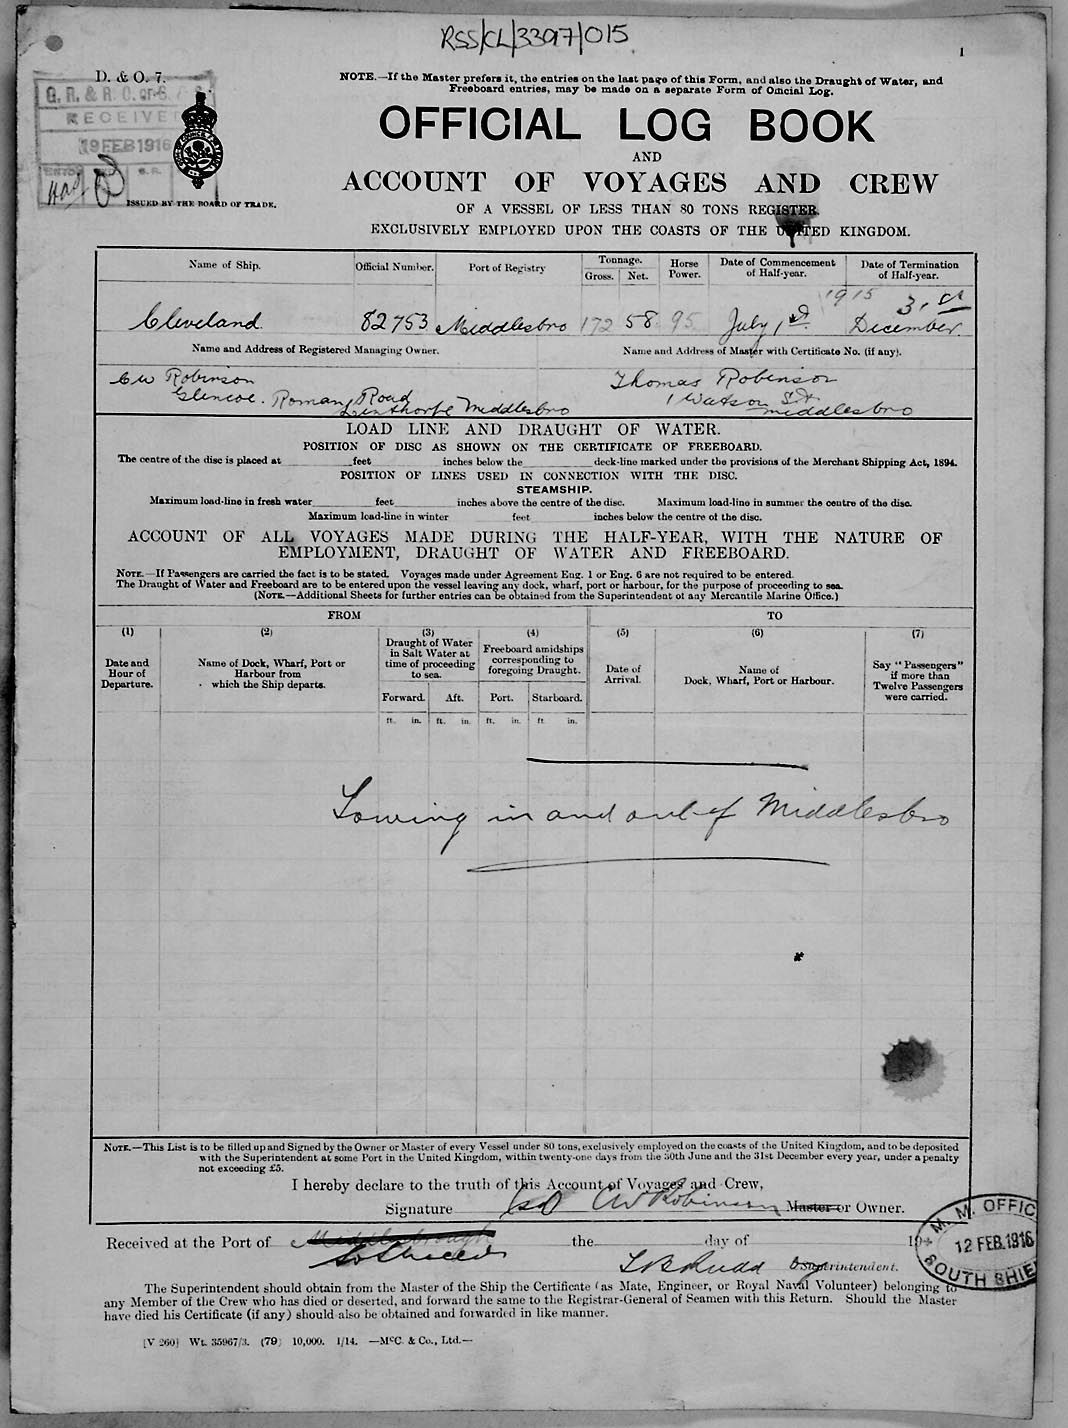 RSS/CL/3397/015
1
D. & O. 7.
G. R. & R. O. of S. & S.
RECEIVED
19 FEB 1916
ISSUED BY THE BOARD OF TRADE.
NOTE.—If the Master prefers it, the entries on the last page of this Form, and also the Draught of Water, and
Freeboard entries, may be made on a separate Form of Official Log.
OFFICIAL LOG BOOK
AND
ACCOUNT OF VOYAGES AND CREW
OF A VESSEL OF LESS THAN 80 TONS REGISTER
EXCLUSIVELY EMPLOYED UPON THE COASTS OF THE UNITED KINGDOM.
Name of Ship. Official Number. Port of Registry Tonnage. Gross. Net. Horse Power. Date of Commencement of Half-year. Date of Termination of Half-year.
1915
Cleveland. 82753 Middlesbro 172 58 95 July 1st 31st December
Name and Address of Registered Managing Owner. Name and Address of Master with Certificate No. (if any).
C W Robinson Thomas Robinson
Glencoe. Roman Road 1 Watson St
Linthorpe Middlesbro Middlesbro
LOAD LINE AND DRAUGHT OF WATER.
POSITION OF DISC AS SHOWN ON THE CERTIFICATE OF FREEBOARD.
The centre of the disc is placed at feet inches below the deck-line marked under the provisions of the Merchant Shipping Act, 1894.
POSITION OF LINES USED IN CONNECTION WITH THE DISC.
STEAMSHIP.
Maximum load-line in fresh water feet inches above the centre of the disc. Maximum load-line in summer the centre of the disc.
Maximum load-line in winter feet inches below the centre of the disc.
ACCOUNT OF ALL VOYAGES MADE DURING THE HALF-YEAR, WITH THE NATURE OF
EMPLOYMENT, DRAUGHT OF WATER AND FREEBOARD.
NOTE.—If Passengers are carried the fact is to be stated. Voyages made under Agreement Eng. 1 or Eng. 6 are not required to be entered.
The Draught of Water and Freeboard are to be entered upon the vessel leaving any dock, wharf, port or harbour, for the purpose of proceeding to sea.
(NOTE.—Additional Sheets for further entries can be obtained from the Superintendent of any Mercantile Marine Office.)
FROM TO
(1) Date and Hour of Departure.
(2) Name of Dock, Wharf, Port or Harbour from which the Ship departs.
(3) Draught of Water in Salt Water at time of proceeding to sea.
Forward. Aft.
(4) Freeboard amidships corresponding to foregoing Draught.
Port. Starboard.
(5) Date of Arrival.
(6) Name of Dock, Wharf, Port or Harbour.
(7) Say "Passengers" if more than Twelve Passengers were carried.
ft. in. ft. in. ft. in. ft in.
Towing in and out of Middlesbro
NOTE.—This List is to be filled up and Signed by the Owner or Master of every Vessel under 80 tons, exclusively employed on the coasts of the United Kingdom, and to be deposited
with the Superintendent at some Port in the United Kingdom, within twenty-one days from the 30th June and the 31st December every year, under a penalty
not exceeding £5.
I hereby declare to the truth of this Account of Voyages and Crew,
Signature CW Robinson Master or Owner.
Received at the Port of Middlesbrough the day of 19
So Shields
Superintendent.
M. M. OFFIC
12 FEB. 1916
SOUTH SHIE
The Superintendent should obtain from the Master of the Ship the Certificate (as Mate, Engineer, or Royal Naval Volunteer) belonging to
any Member of the Crew who has died or deserted, and forward the same to the Registrar-General of Seamen with this Return. Should the Master
have died his Certificate (if any) should also be obtained and forwarded in like manner.
[V 260] Wt. 35967/3. (79) 10,000. 1/14. —McC. & Co., Ltd.—